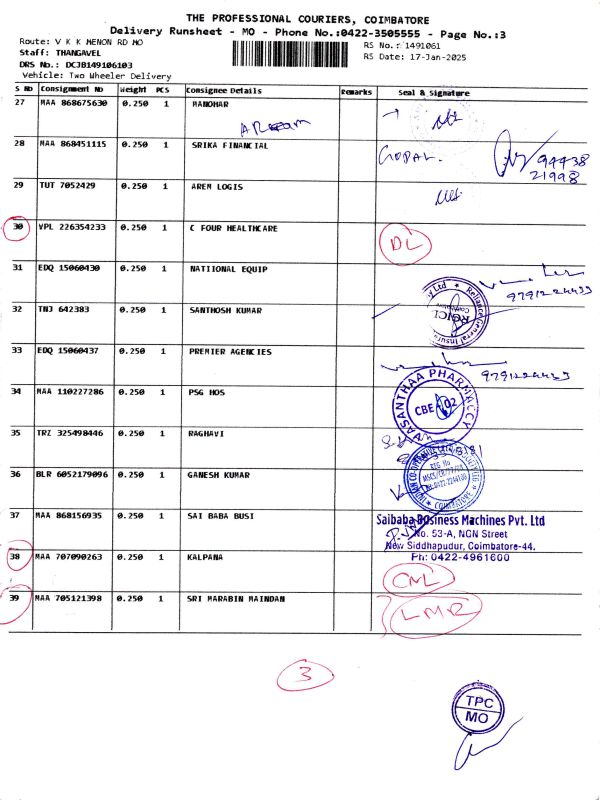 THE PROFESSIONAL COURIERS, COIMBATORE
Delivery Runsheet - MO - Phone No.:0422-3505555 - Page No.:3
Route: V K K MENON RD MO
RS No.: 1491061
Staff: THANGAVEL
RS Date: 17-Jan-2025
DRS No.: DCJB149106103
Vehicle: Two Wheeler Delivery
S NO Consignment No Weight PCS Consignee Details Remarks Seal & Signature
27 MAA 868675630 0.250 1 MANOHAR
28 MAA 868451115 0.250 1 SRIKA FINANCIAL GOPAL. 94438
21998
29 TUT 7052429 0.250 1 AREM LOGIS
30 VPL 226354233 0.250 1 C FOUR HEALTHCARE DL
31 EDQ 15060430 0.250 1 NATIIONAL EQUIP
9791224433
32 TNJ 642383 0.250 1 SANTHOSH KUMAR
Reliance General Insur
RGICL
33 EDQ 15060437 0.250 1 PREMIER AGENCIES
9791224433
34 MAA 110227286 0.250 1 PSG HOS
VASANTHAA PHARMACCY
CBE-02
35 TRZ 325498446 0.250 1 RAGHAVI
36 BLR 6052179096 0.250 1 GANESH KUMAR
COIMBATORE
37 MAA 868156935 0.250 1 SAI BABA BUSI
Saibaba Business Machines Pvt. Ltd
No. 53-A, NGN Street
New Siddhapudur, Coimbatore-44.
Ph: 0422-4961600
38 MAA 707090263 0.250 1 KALPANA CNL
39 MAA 705121398 0.250 1 SRI MARABIN MAINDAN LMR
3
TPC
MO